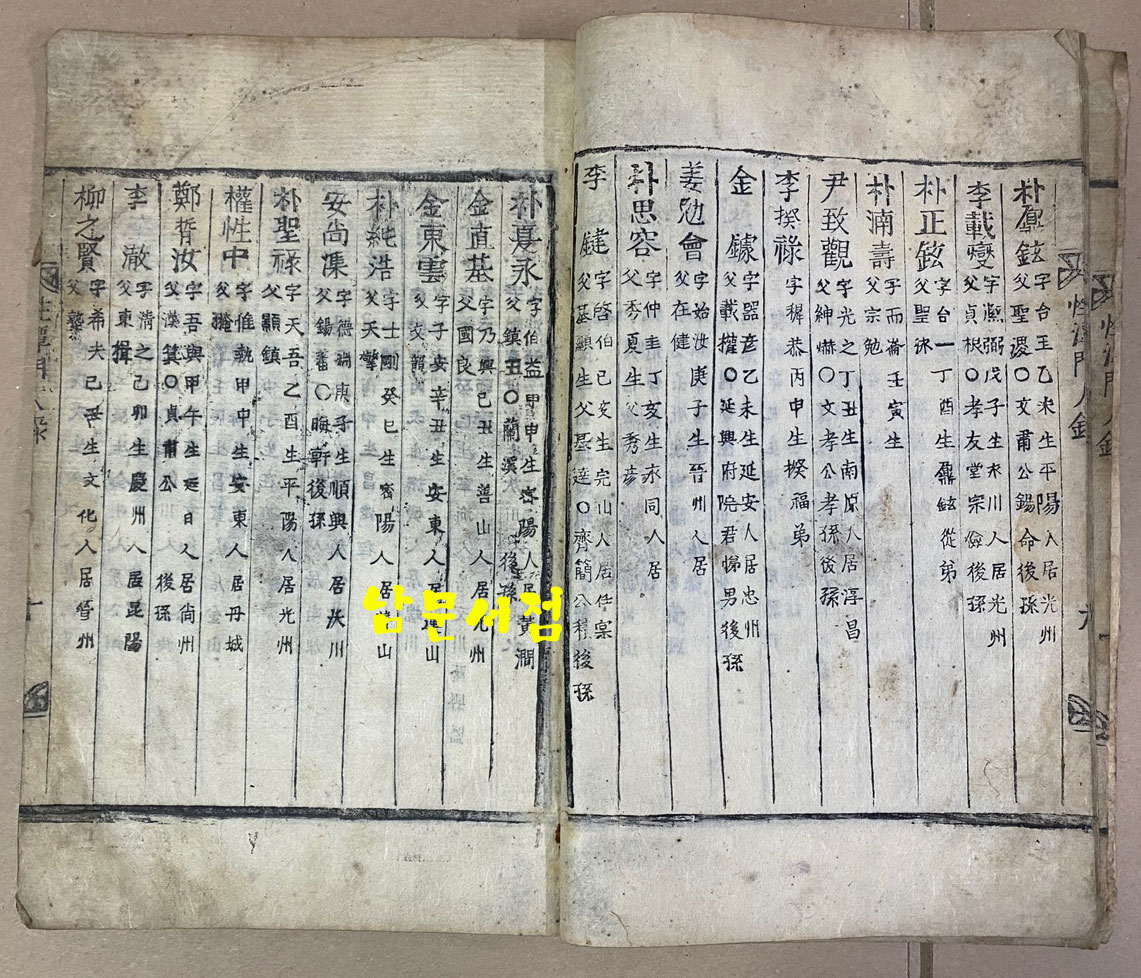 性潭門人錄
性潭門人錄
九
朴鼎鉉 字台王乙未生平陽人居光州
父聖源〇文肅公錫命後孫
李載燮 字熙弼戊子生永川人居光州
父貞根〇孝友堂宗儉後孫
朴正鉉 字台一丁酉生鼎鉉從弟
父聖休
朴湳壽 字而崙壬寅生
父宗勉
尹致觀 字光之丁丑生南原人居淳昌
父紳爀〇文孝公孝孫後孫
李揆祿 字穉恭丙申生揆福弟
金鐻 字器彦乙未生延安人居忠州
父載權〇延興府院君悌男後孫
姜勉會 字始汝庚子生晉州人居
父在健
朴思容 字仲圭丁亥生永同人居
父秀夏生父秀彦
李鍵 字啓伯己亥生完山人居任實
父基顯生父基達〇齊簡公種後孫
朴夏永 字伯益甲申生密陽人居黃澗
父鎭丑〇蘭溪後孫
金直基 字乃興己丑生善山人居光州
父國良
金東雲 字子安辛丑生安東人居連山
父文
朴純浩 字士剛癸巳生密陽人居山
父天擎
安尙 字德瑞庚子生順興人居川
父錫蕃〇晦軒後孫
朴聖祿 字天吾乙酉生平陽人居光州
父顯鎭
權性中 字惟執甲申生安東人居丹城
父
鄭胥汝 字吾與甲午生延日人居尙州
父漢箕〇貞肅公後孫
李澈 字淸之己卯生慶州人居昆陽
父東楫
柳之賢 字希夫己亥生文化人居晉州
父
性潭門人錄
十
남문서점